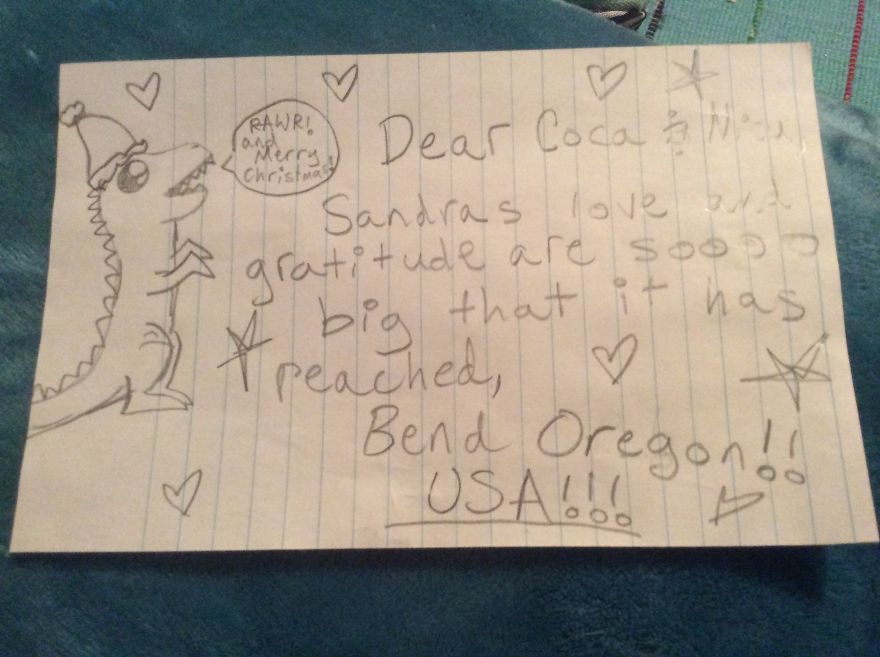 RAWR!
and
Merry
Christmas!
Dear Coca &
Sandras love and
gratitude are soooo
big that it has
reached,
Bend Oregon!!
USA!!!